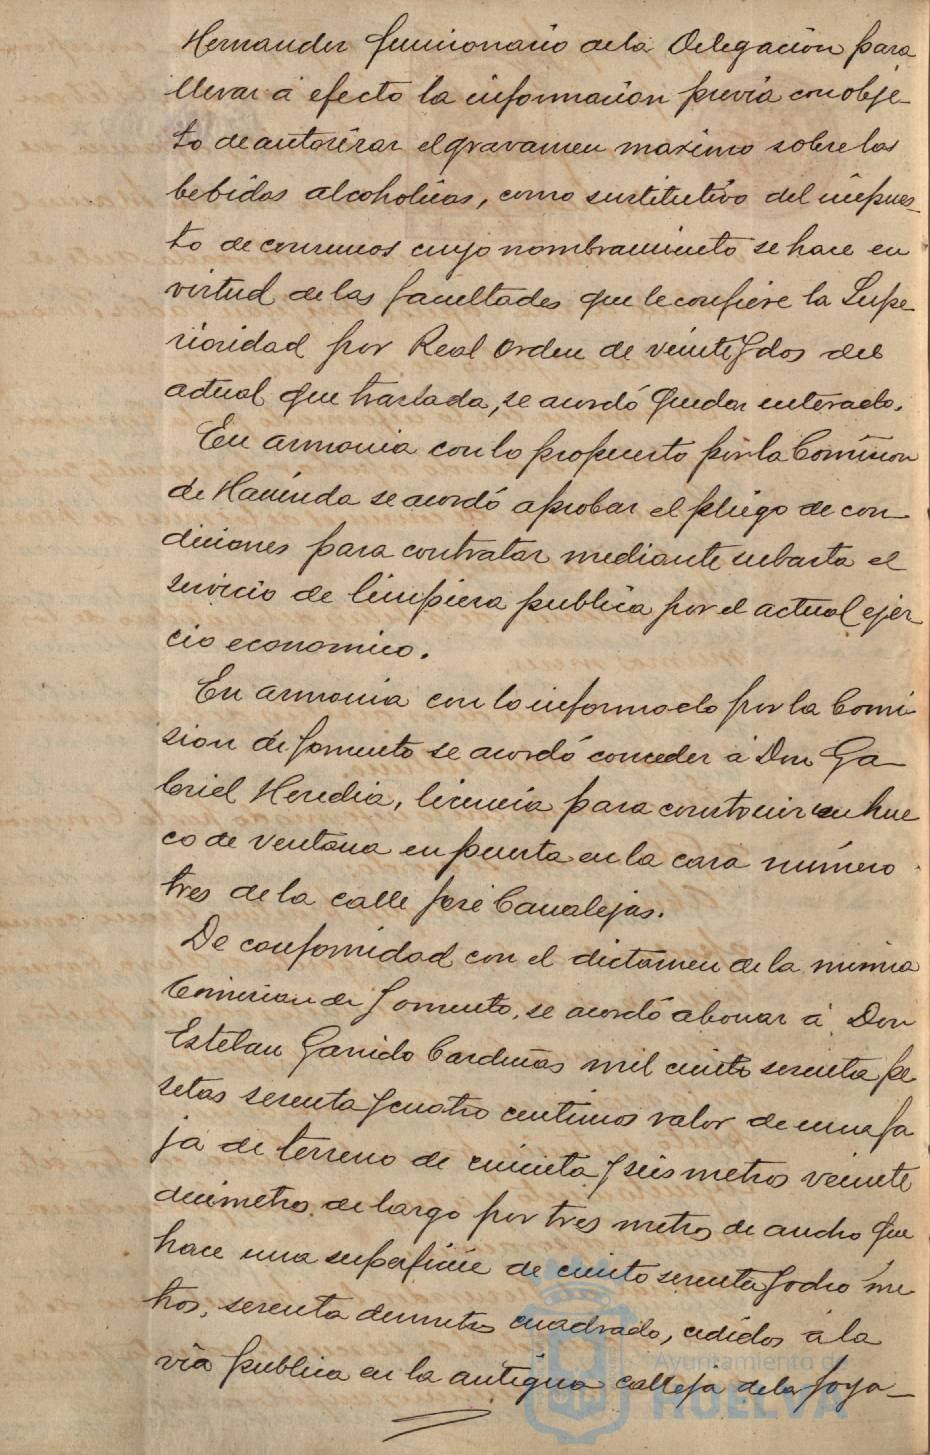 Hernandez funcionario dela Delegación para
llevar á efecto la información previa con obje-
to de autorizar el gravamen maximo sobre las
bebidas alcoholicas, como sustitutivo del impues-
to de consumos cuyo nombramiento se hace en
virtud de las facultades que le confiere la Supe
rioridad por Real Orden de veinte y dos del
actual que traslada, se acordó quedar enterado.
En armonia con lo propuesto por la Comision
de Hacienda se acordó aprobar el pliego de con-
diciones para contratar mediante subasta el
servicio de limpieza publica por el actual ejer
cio economico.
En armonia con lo informado por la Comi
sion de fomento se acordó conceder á Don Ga-
briel Heredia, licencia para construir un hue
co de ventana en puerta en la casa número
tres de la calle José Canalejas.
De conformidad con el dictamen de la misma
Comision de Fomento, se acordó abonar á Don
Esteban Garrido Cardeñas mil ciento sesenta pe
setas sesenta y cuatro centimos valor de una fa
ja de terreno de cincuenta y seis metros veinte
decimetros de largo por tres metros de ancho que
hace una superficie de ciento sesenta y ocho me
tros, sesenta decimetros cuadrados, cedidos á la
via publica en la antigua calleja de la Joya-
Ayuntamiento de
HUELVA